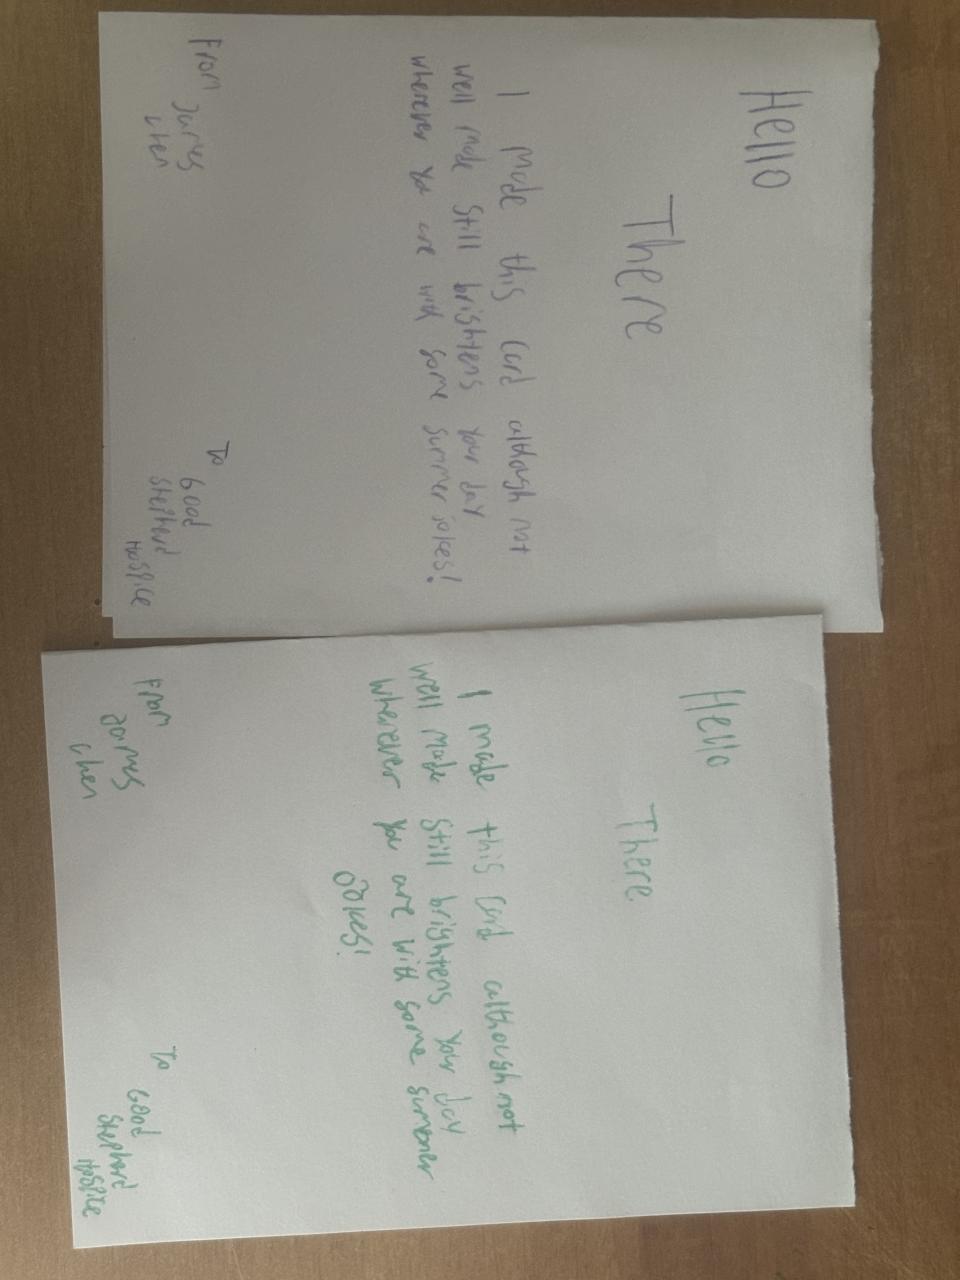 Hello
There
I made this card although not
well made still brightens your day
wherever you are with some summer jokes!
From
James
Chen
To
Good
Shepherd
Hospice
Hello
There
I made this card although not
well made still brightens your day
wherever you are with some summer
Jokes!
From
James
Chen
To
Good
Shephard
Hospice